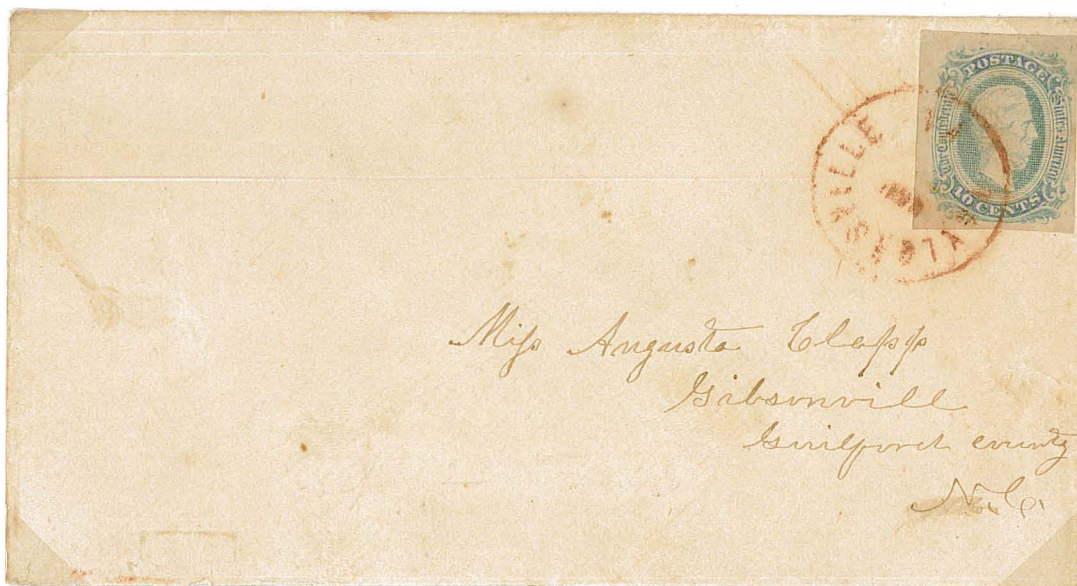 POSTAGE
The Confederate States of America
10 CENTS
VILLE
Miss Augusta Clapp
Gibsonvill
Guilford county
N.C.